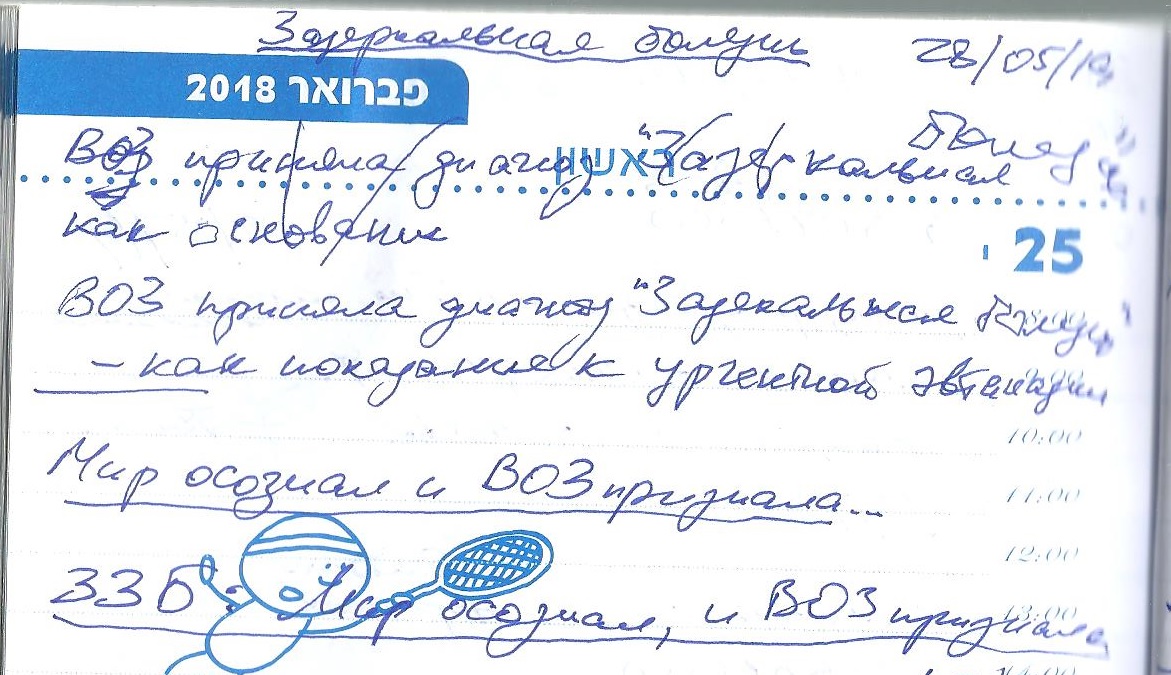 Зазеркальная болезнь 28/05/19
פברואר 2018
ВОЗ приняла диагноз "Зазеркальная болезнь"
ראשון
как основание
25
ВОЗ приняла диагноз "Зазекальная болезнь"
- как показание к ургентной эвтаназии
10:00
Мир осознал и ВОЗ признала...
11:00
12:00
ЗЗБ: Мир осознал, и ВОЗ признала
13:00
14:00